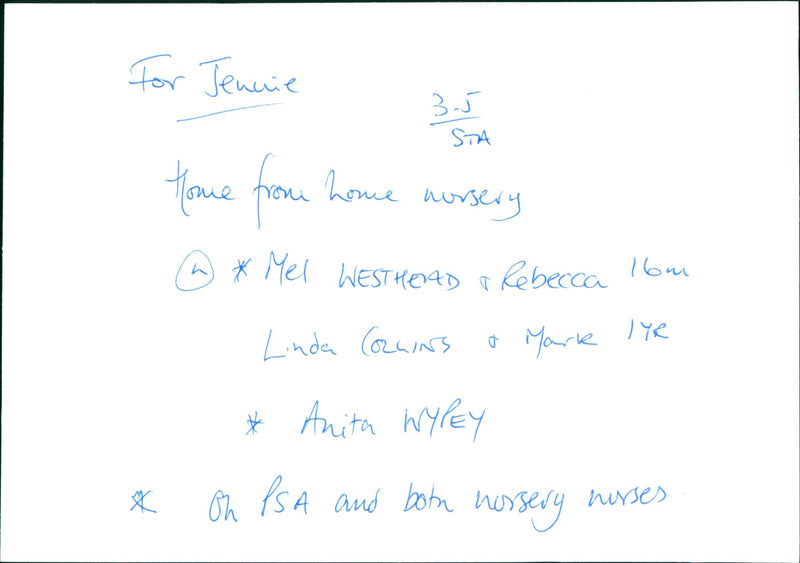 For Jennie
3-5
STA
Home from home nursery
(L) * Mel WESTHEAD & Rebecca 16m
Linda COLLINS & Mark 1YR
* Anita WYPEY
* On PSA and both nursery nurses